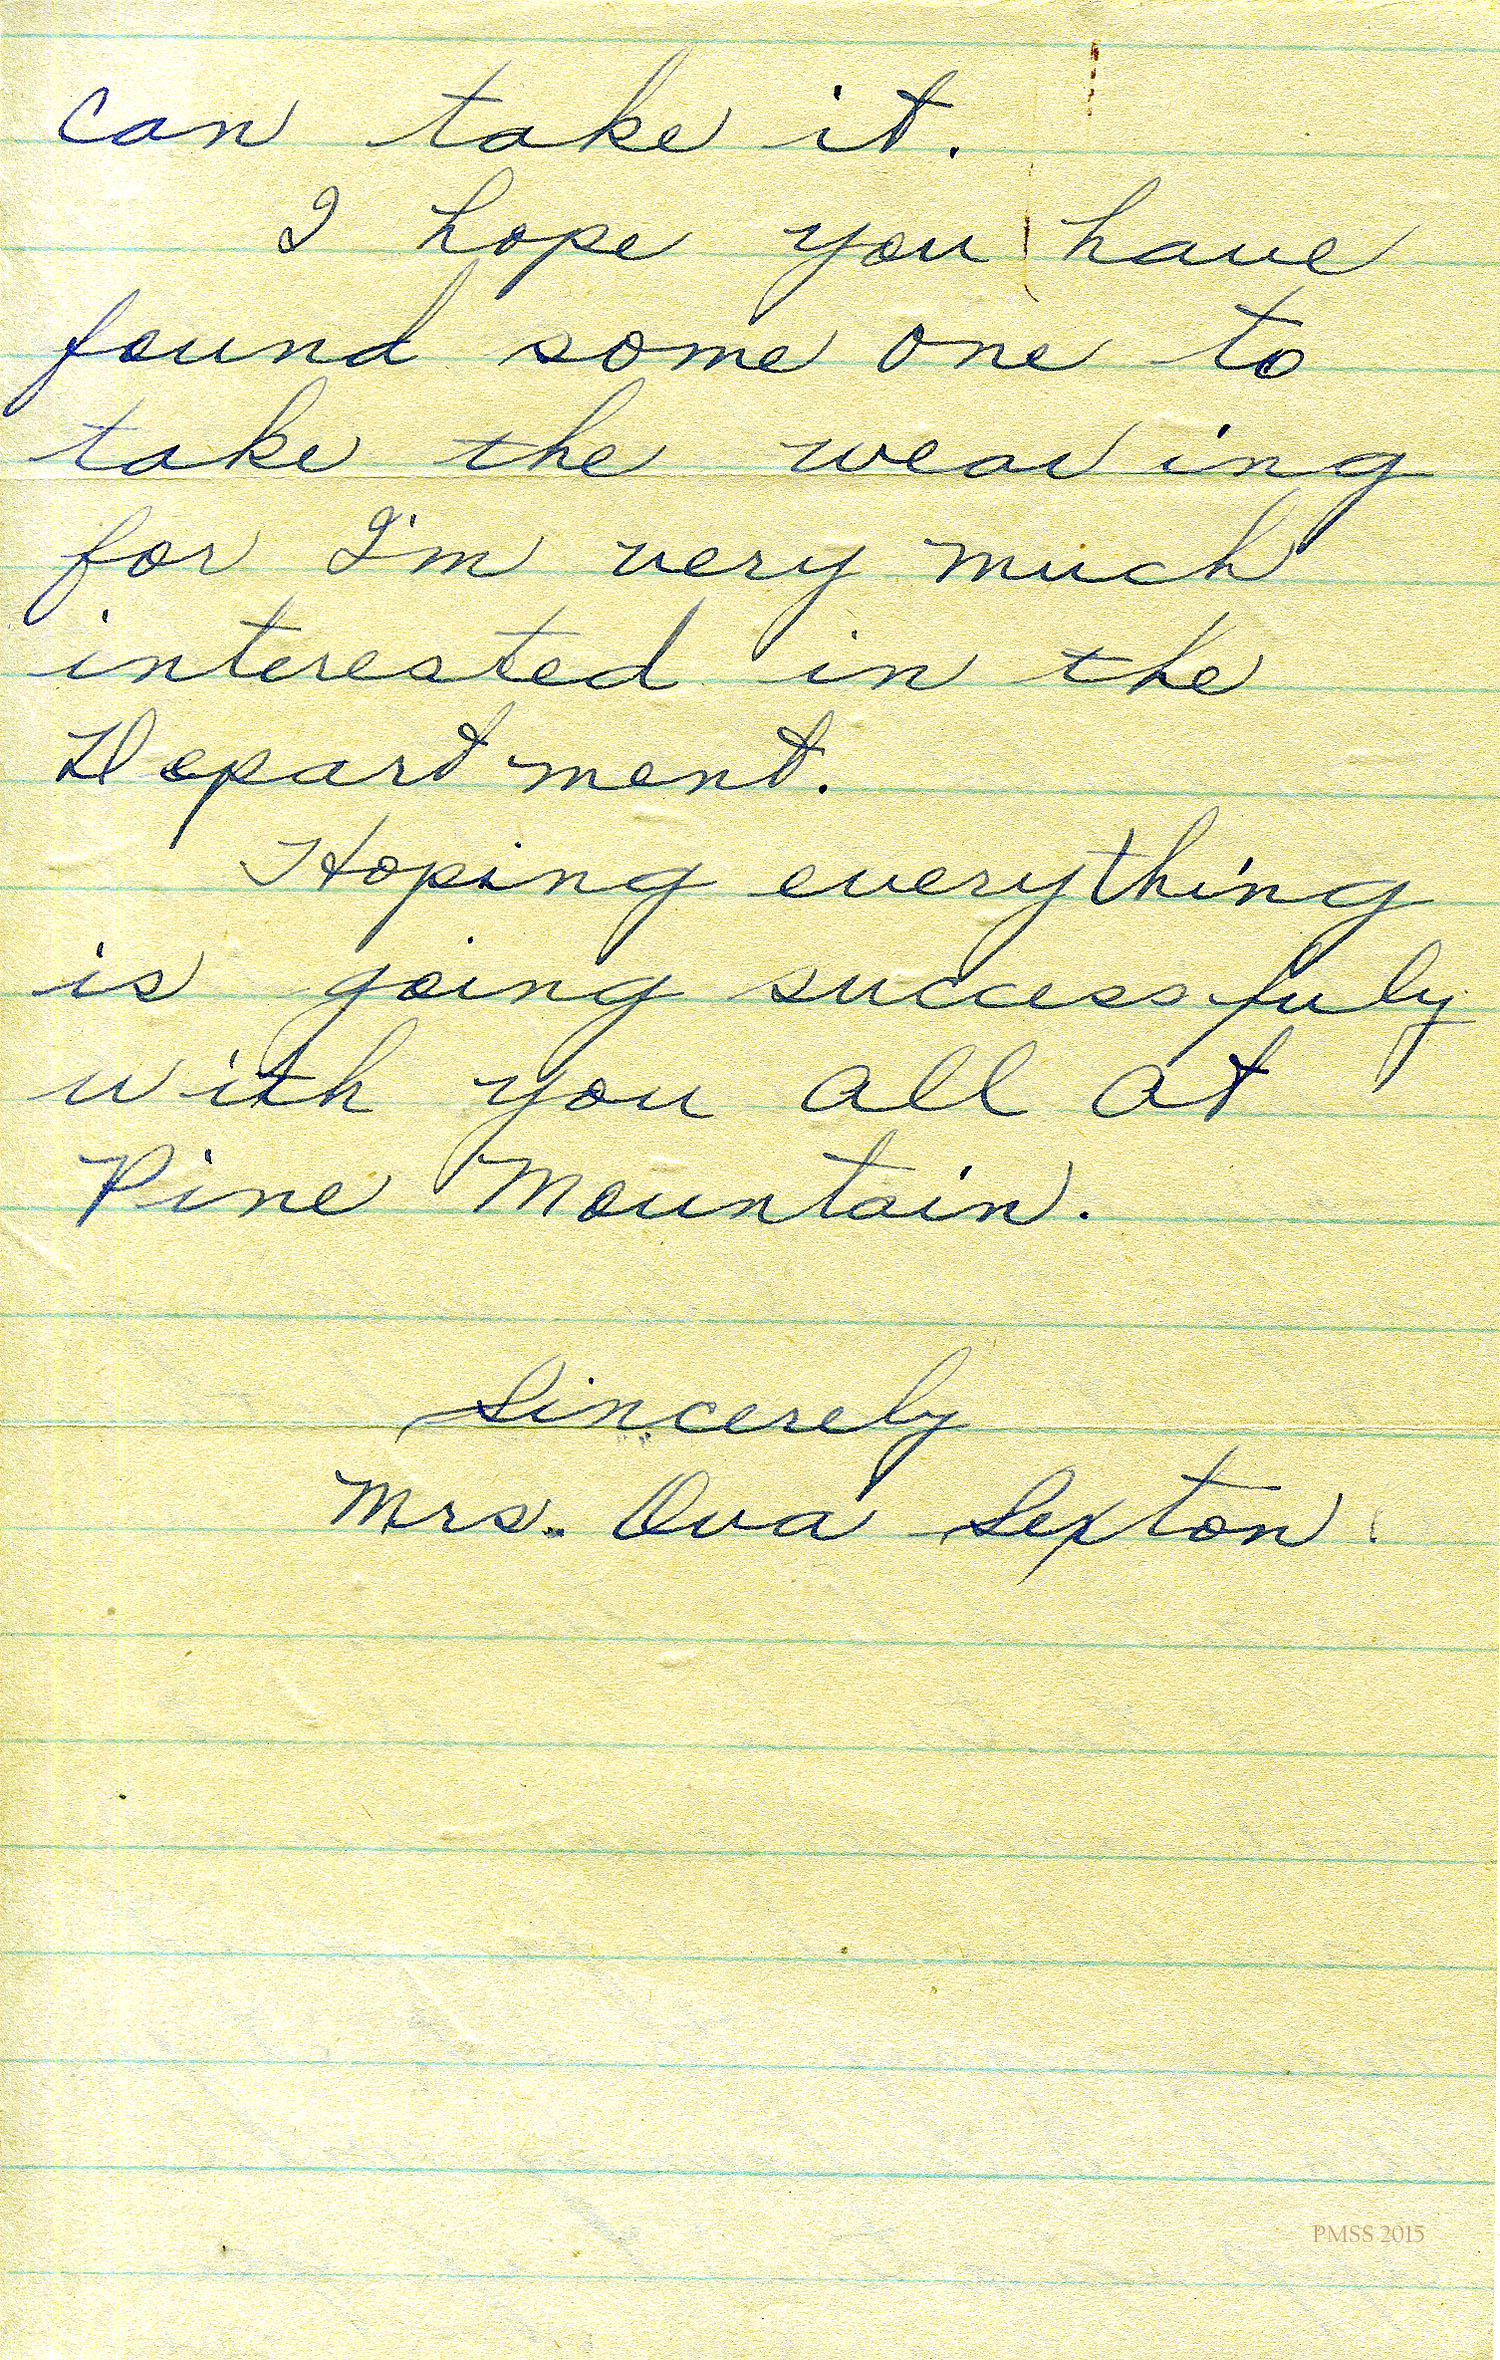 can take it.
I hope you have
found some one to
take the weaving
for I'm very much
interested in the
Department.
Hoping everything
is going successfuly
with you all at
Pine Mountain.
Sincerely
Mrs. Ova Sexton
PMSS 2015